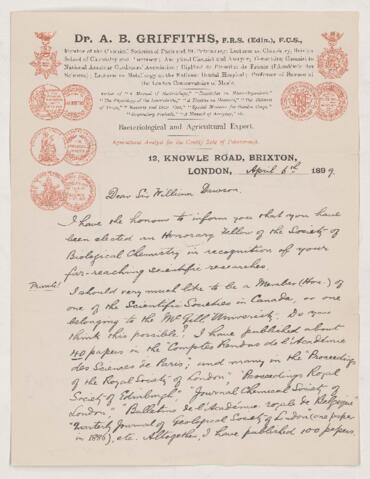 Dr. A. B. GRIFFITHS, F.R.S. (Edin.), F.C.S.,
Member of the Chemical Societies of Paris and St. Petersburg; Lecturer on Chemistry, Brixton
School of Chemistry and Pharmacy; Analytical Chemist and Assayer; Consulting Chemist to
National Amateur Gardeners' Association;
Lecturer on Metallurgy at the National Dental Hospital; Professor of
the London Conservatoire of Music.
Author of "A Manual of Bacteriology," "Researches on Micro-Organisms"
"The Physiology of the Invertebrata," "A Treatise on Manures," "The Diseases
of Crops," "Special Manures for Garden Crops,"
"Respiratory Proteids," "A Manual of Assaying," etc.
Bacteriological and Agricultural Expert.
Agricultural Analyst for the County Soke of Peterborough.
12, KNOWLE ROAD, BRIXTON,
LONDON, April 6th 1899.
Dear Sir William Dawson,
I have the honour to inform you that you have
been elected an Honorary Fellow of the Society of
Biological Chemistry in recognition of your
far-reaching scientific researches.
Private! I should very much like to be a Member (Hon.) of
one of the Scientific Societies in Canada, or one
belonging to the McGill University. Do you
think this possible? I have published about
40 papers in the "Comptes Rendus de l'Académie
des Sciences de Paris; and many in the "Proceedings
of the Royal Society of London," "Proceedings Royal
Society of Edinburgh," "Journal Chemical Society of
London," "Bulletins de l'Académie royale de Belgique"
"Quarterly Journal of Geological Society of London" (one paper
in 1886), etc. Altogether, I have published 100 papers